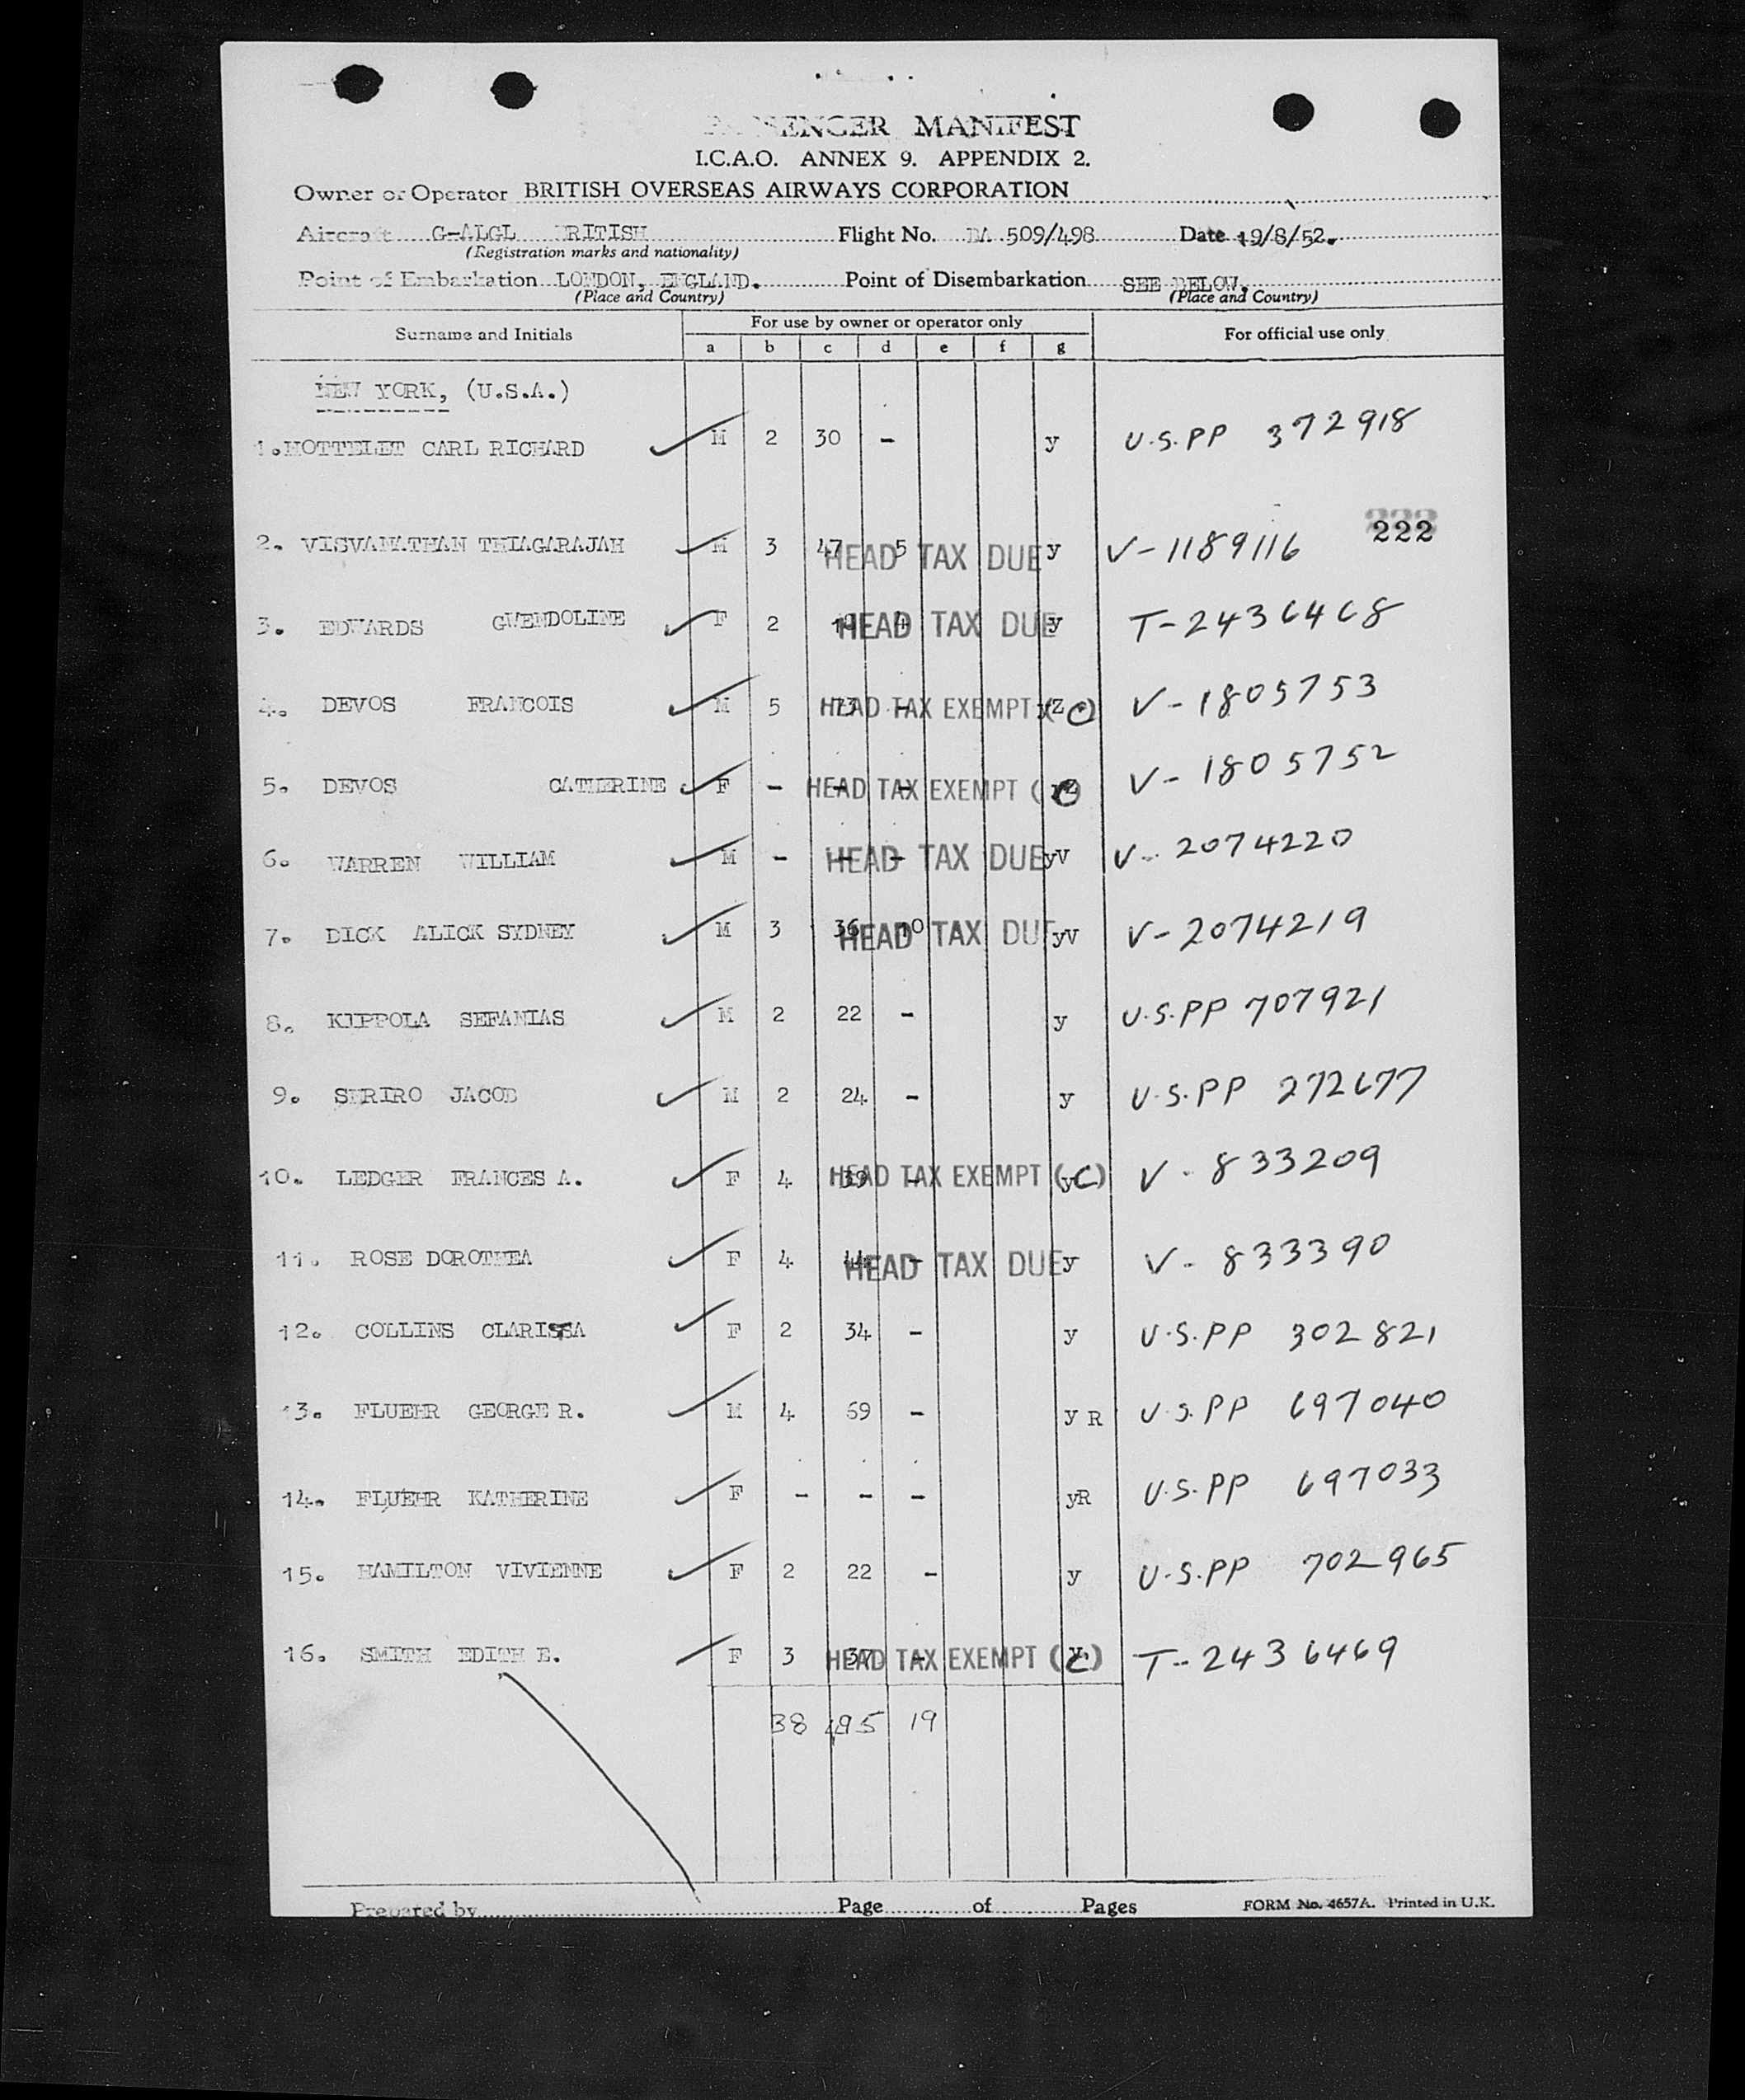 PASSENGER MANIFEST
I.C.A.O. ANNEX 9. APPENDIX 2.
Owner or Operator BRITISH OVERSEAS AIRWAYS CORPORATION
Aircraft G-ALGL BRITISH Flight No. BA 509/498 Date 19/8/52.
(Registration marks and nationality)
Point of Embarkation LONDON, ENGLAND. Point of Disembarkation SEE BELOW.
(Place and Country) (Place and Country)
Surname and Initials For use by owner or operator only For official use only
a b c d e f g
NEW YORK, (U.S.A.)
1. HOTTELET CARL RICHARD M 2 30 - y U.S.PP 372918
222
2. VISVANATHAN THIAGARAJAH M 3 47 5 HEAD TAX DUE y V-1189116
3. EDWARDS GWENDOLINE F 2 4 HEAD TAX DUE y T-2436468
4. DEVOS FRANCOIS M 5 73 - HEAD TAX EXEMPT ( yZ C) V-1805753
5. DEVOS CATHERINE F - - - HEAD TAX EXEMPT ( yZ C) V-1805752
6. WARREN WILLIAM M - - - HEAD TAX DUE yV V-2074220
7. DICK ALICK SYDNEY M 3 36 10 HEAD TAX DUE yV V-2074219
8. KIPPOLA SEFANIAS M 2 22 - y U.S.PP 707921
9. SHRIRO JACOB M 2 24 - y U.S.PP 272677
10. LEDGER FRANCES A. F 4 39 - HEAD TAX EXEMPT ( y C) V-833209
11. ROSE DOROTHEA F 4 44 - HEAD TAX DUE y V-833390
12. COLLINS CLARISSA F 2 34 - y U.S.PP 302821
13. FLUEHR GEORGE R. M 4 69 - y R U.S.PP 697040
14. FLUEHR KATHERINE F - - - yR U.S.PP 697033
15. HAMILTON VIVIENNE F 2 22 - y U.S.PP 702965
16. SMITH EDITH E. F 3 37 - HEAD TAX EXEMPT ( y C) T-2436469
38 495 19
Prepared by Page of Pages FORM No. 4657A. Printed in U.K.